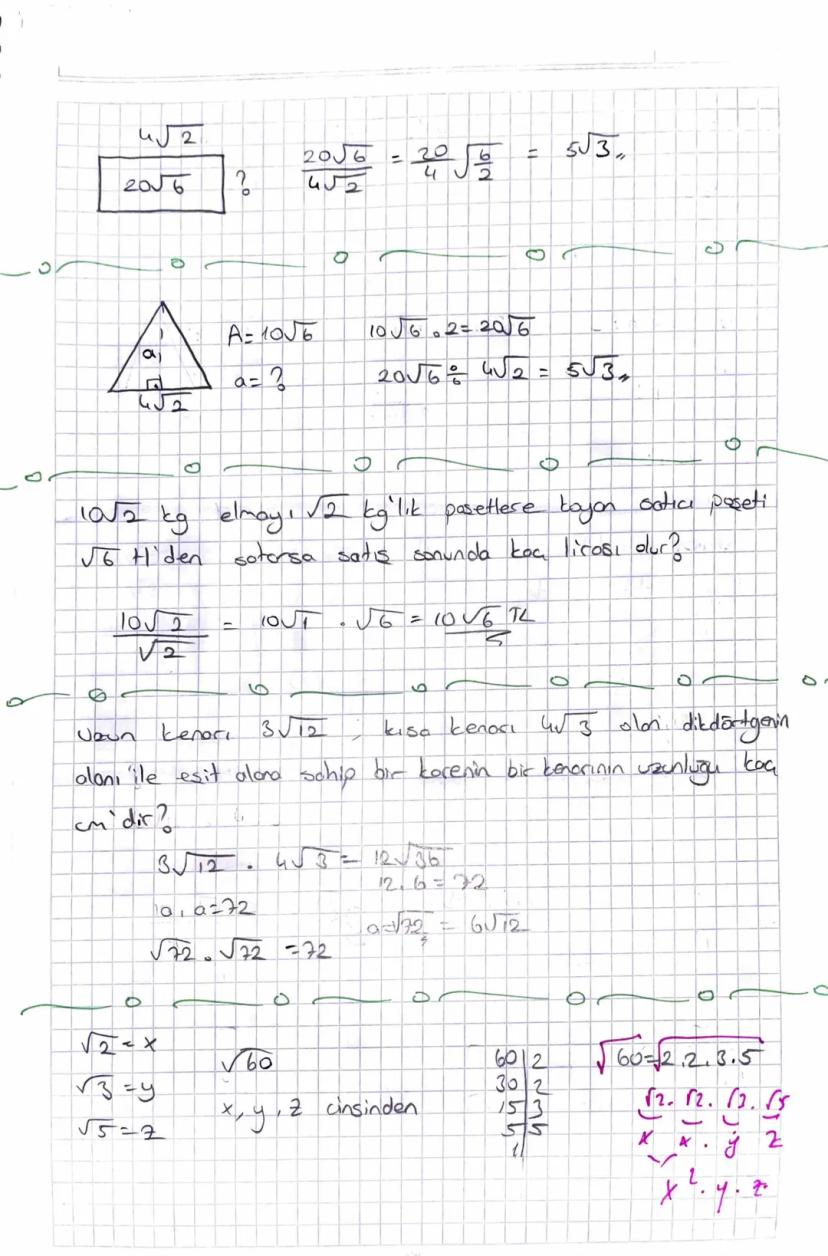 4√2
20√6 ? 20√6/4√2 = 20/4 √6/2 = 5√3
A=10√6 10√6 . 2=20√6
a
a=? 20√6 ÷ 4√2 = 5√3
4√2
10√2 kg elmayı √2 kg'lık poşetlere koyan satıcı poşeti
√6 tl'den satarsa satış sonunda kaç lirası olur?
10√2/√2 = 10√1 . √6 = 10√6 TL
Uzun kenarı 3√12, kısa kenarı 4√3 olan dikdörtgenin
alanı ile eşit alana sahip bir karenin bir kenarının uzunluğu kaç
cm'dir?
3√12 . 4√3 = 12√36
12.6=72
a.a=72
a=√72 = 6√12
√72 . √72 =72
√2=x
√3=y
√5=z
√60
x, y, z cinsinden
60|2
30|2
15|3
5|5
1|
√60=√2.2.3.5
√2. √2. √3. √5
x x . y z
x². y. z